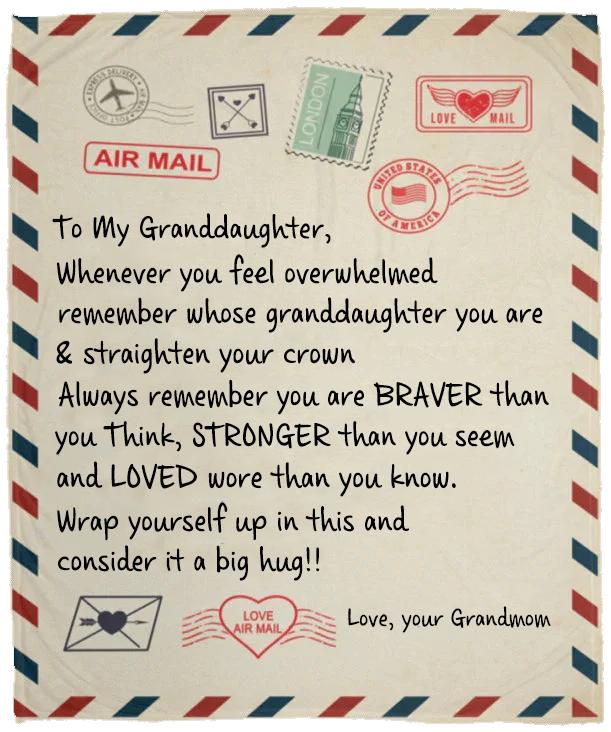 EXPRESS DELIVERY
AIR MAIL
POST OFFICE
LONDON
LOVE MAIL
AIR MAIL
UNITED STATES
OF AMERICA
To My Granddaughter,
Whenever you feel overwhelmed
remember whose granddaughter you are
& straighten your crown
Always remember you are BRAVER than
you Think, STRONGER than you seem
and LOVED wore than you know.
Wrap yourself up in this and
consider it a big hug!!
LOVE
AIR MAIL
Love, your Grandmom